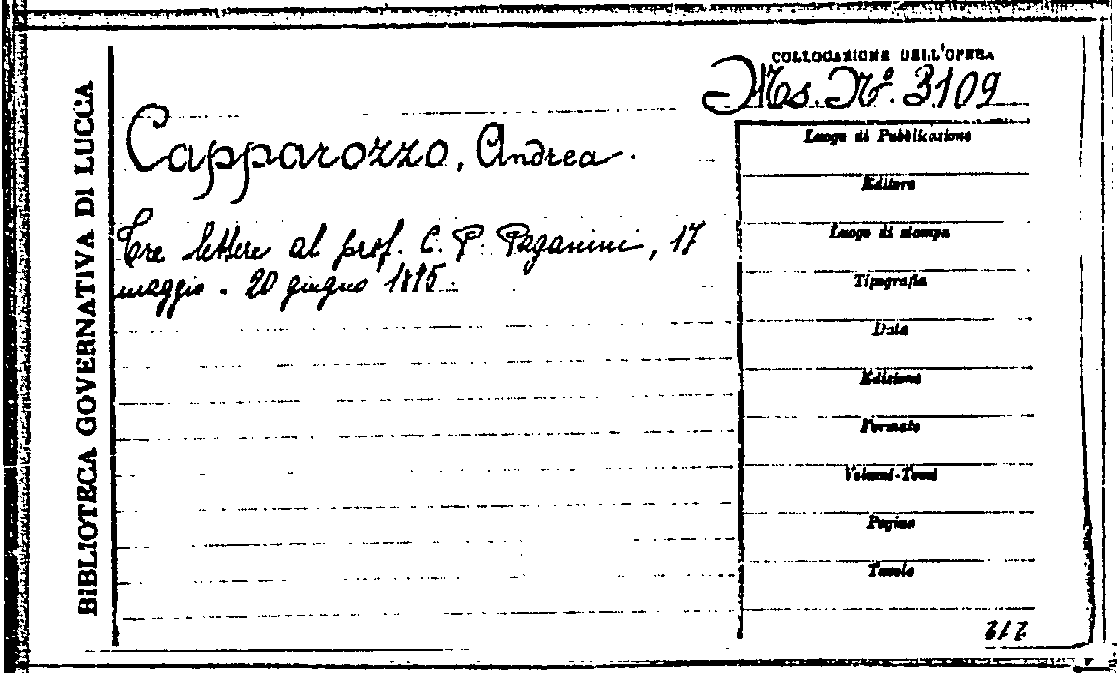 BIBLIOTECA GOVERNATIVA DI LUCCA
COLLOCAZIONE DELL'OPERA
Ms. Nº. 3109
Capparozzo, Andrea.
Tre lettere al prof. C. P. Paganini, 17
maggio - 20 giugno
Luogo di Pubblicazione
Editore
Luogo di stampa
Tipografia
Data
Edizione
Formato
Volumi-Tomi
Pagine
Tavole